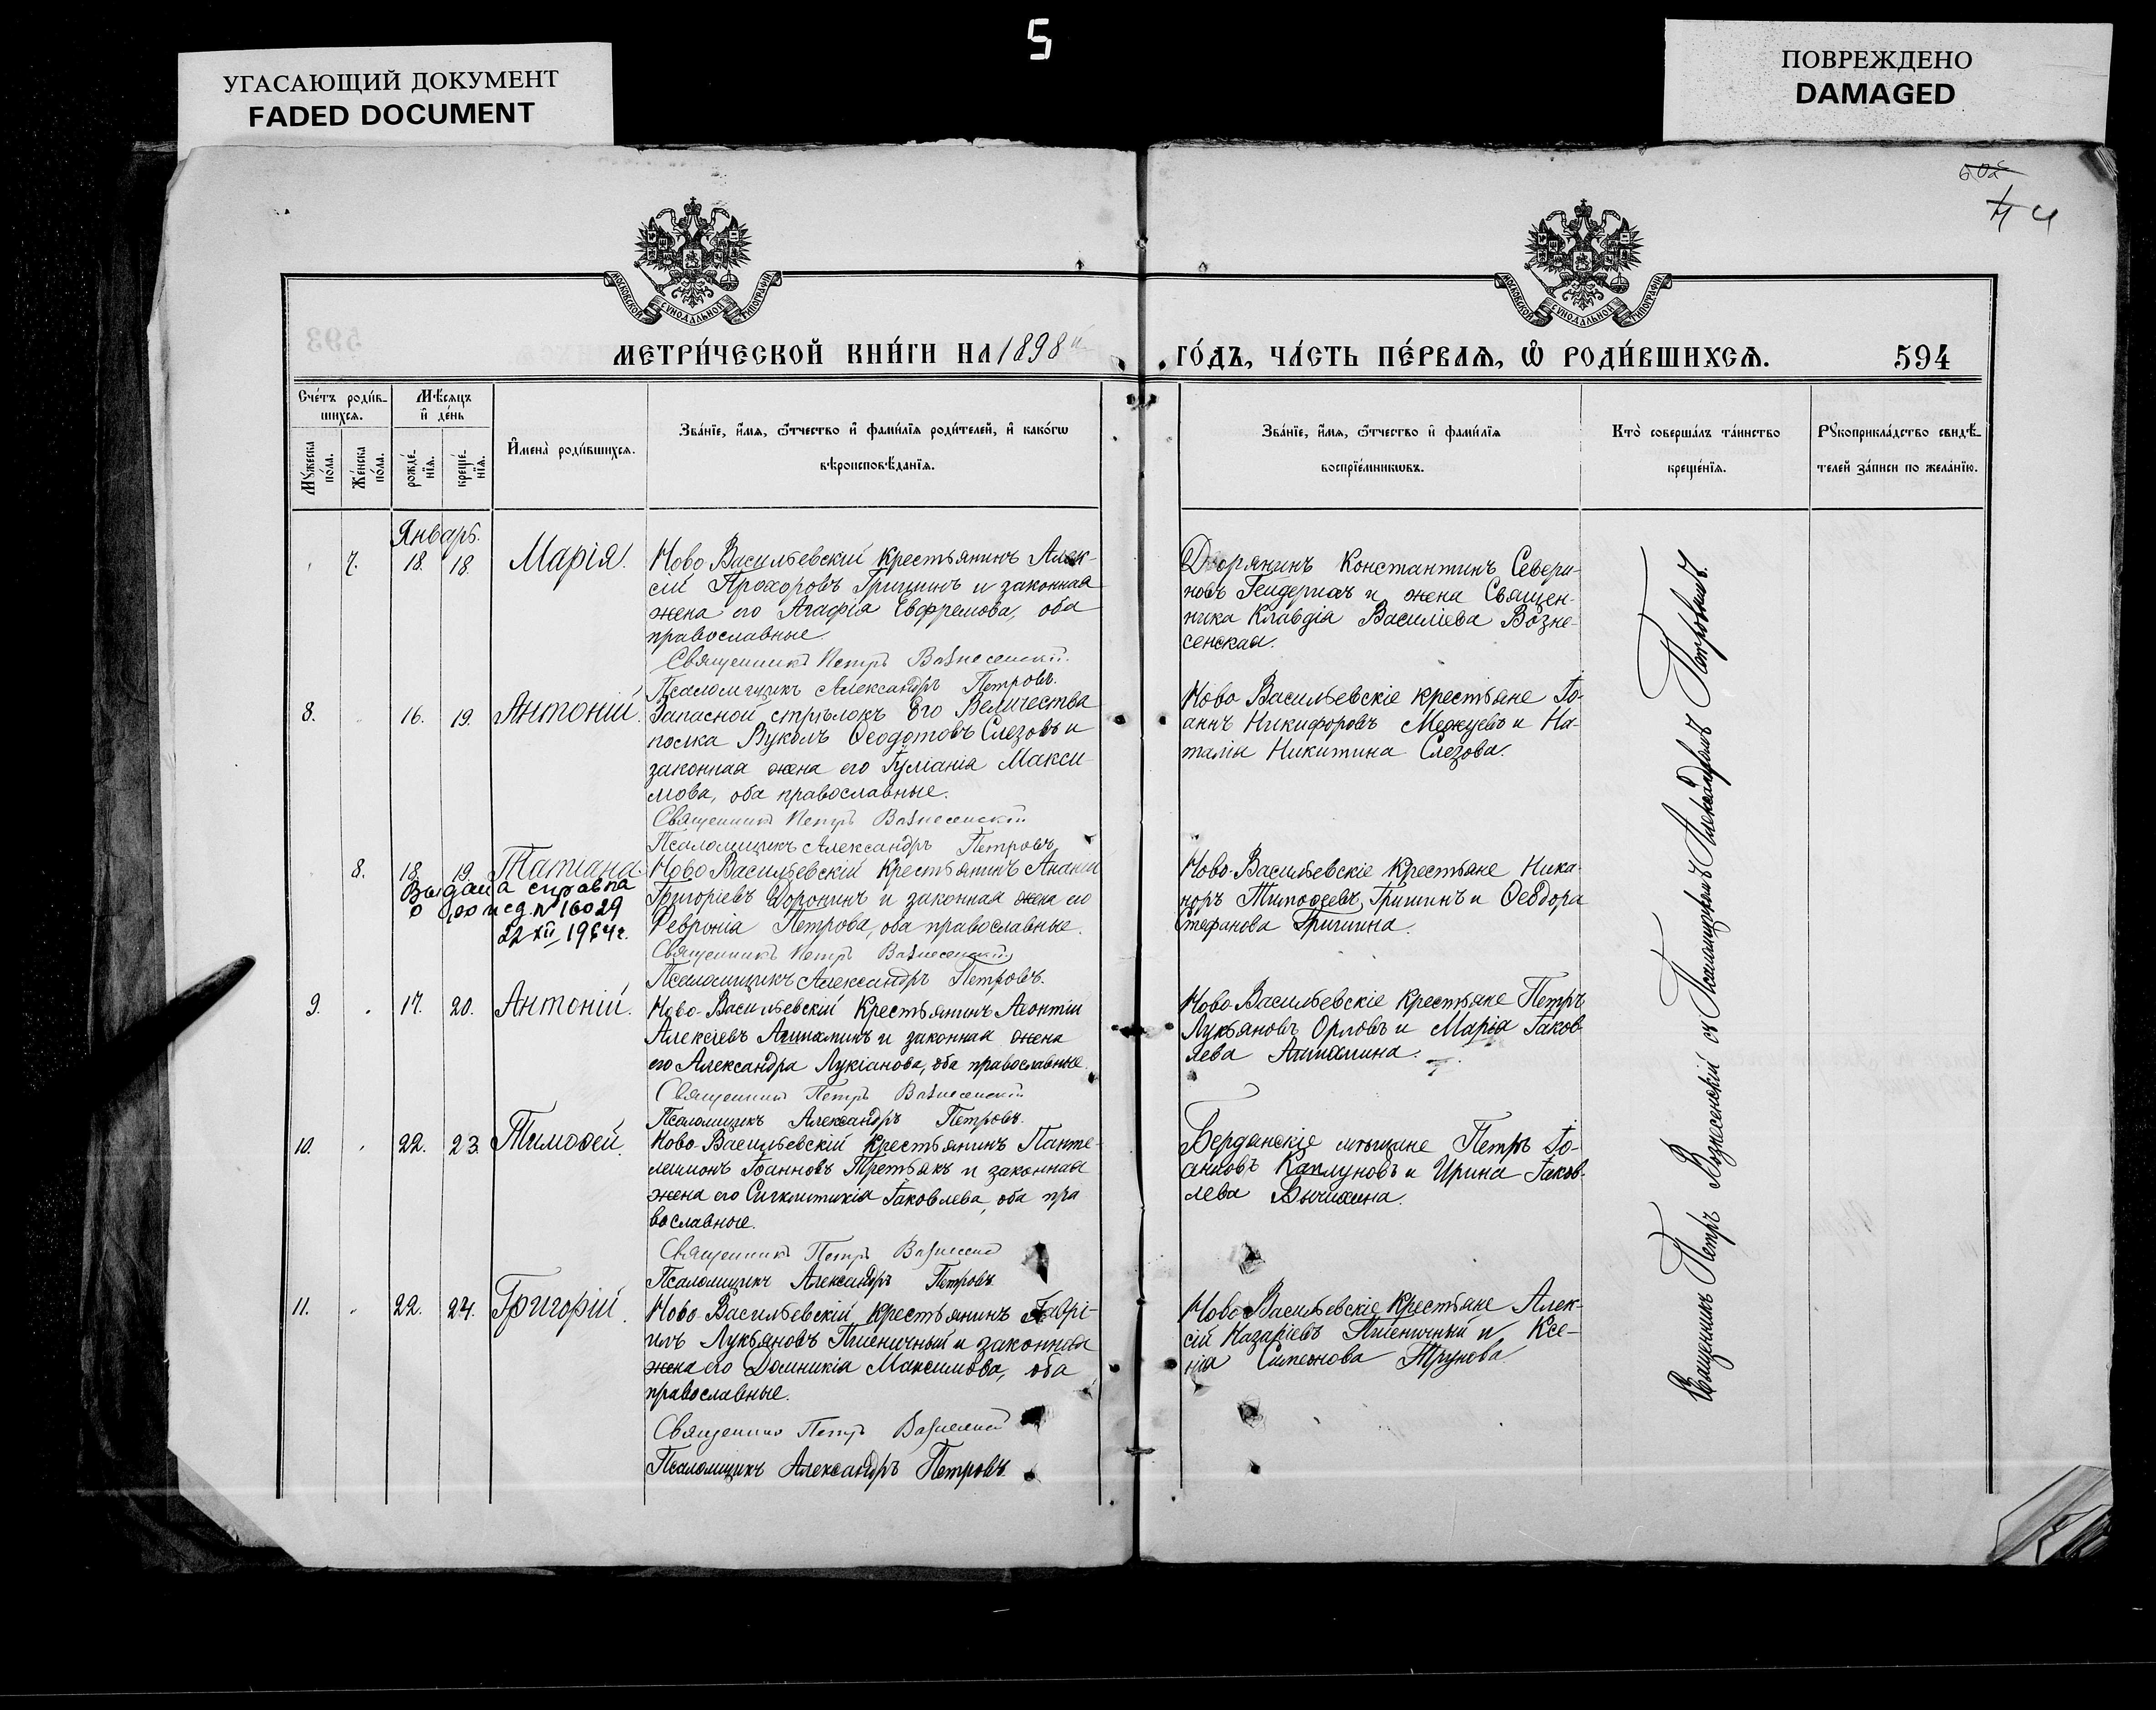 5
УГАСАЮЩИЙ ДОКУМЕНТ
FADED DOCUMENT
ПОВРЕЖДЕНО
DAMAGED
4
МОСКОВСКОЙ СѴНОДАЛЬНОЙ ТИПОГРАФІИ
МОСКОВСКОЙ СѴНОДАЛЬНОЙ ТИПОГРАФІИ
МЕТРИ́ЧЕСКОЙ КНИ́ГИ НА 1898й
ГО́ДЪ, ЧА́СТЬ ПЕ́РВАѦ, Ѽ РОДИ́ВШИХСѦ. 594
Сче́тъ роди́в-
шихся.
Мѣ́сяцъ
и҆ де́нь
Мꙋ́жеска
по́ла.
Же́нска
по́ла.
рожде́-
нїя.
креще́-
нїя.
И҆мена̀ роди́вшихся.
Зва́нїе, и҆́мя, ѻ҆́тчество и҆ фами́лїя роди́телей, и҆ како́гѡ
вѣроисповѣ́данїя.
Зва́нїе, и҆́мя, ѻ҆́тчество и҆ фами́лїя
воспрїе́мникѡвъ.
Кто̀ соверша́лъ та́инство
креще́нїя.
Рꙋкоприкла́дство свидѣ́-
телей за́писи по жела́нїю.
Январь.
7. 18. 18. Марія.
Ново Васильевскій крестьянинъ Алек-
сій Прохоровъ Гришинъ и законная
жена его Агафія Евфремова, оба
православные.
Священникъ Петръ Вознесенскій.
Псаломщикъ Александръ Петровъ.
Дворянинъ Константинъ Севери-
новъ и жена Священ-
ника Клавдіа Василіева Возне-
сенская.
8. 16. 19. Антоній.
Запасной стрѣлокъ Его Величества
полка Вуколъ Ѳеодотовъ Слезовъ и
законная жена его Іуліанія Макси-
мова, оба православные.
Священникъ Петръ Вознесенскій
Псаломщикъ Александръ Петровъ
Ново Васильевскіе крестьяне Іо-
аннъ Никифоровъ Межуевъ и На-
талія Никитина Слезова.
8. 18. 19. Татіана.
Выдана справка
о рожд. № 16029
22 XII 1954г.
Ново Васильевскій крестьянинъ Ананій
Григоріевъ Доронинъ и законная жена его
Февронія Петрова, оба православные.
Священникъ Петръ Вознесенскій
Псаломщикъ Александръ Петровъ.
Ново-Васильевскіе крестьяне Ника-
норъ Тимоѳеевъ Гришинъ и Ѳеодора
Стефанова Гришина.
9. 17. 20. Антоній.
Ново-Васильевскій крестьянинъ Леонтій
Алексіевъ и законная жена
его Александра Лукіанова, оба православные.
Священникъ Петръ Вознесенскій
Псаломщикъ Александръ Петровъ.
Ново Васильевскіе крестьяне Петръ
Лукьяновъ Орловъ и Марія Іаков-
лева
10. 22. 23. Тимоѳей.
Ново-Васильевскій крестьянинъ Панте-
леимонъ Іоанновъ Третьякъ и законная
жена его Сигклитикія Іаковлева, оба пра
вославные.
Священникъ Петръ Вознесенскій
Псаломщикъ Александръ Петровъ
Бердянскіе мѣщане Петръ Іо-
анновъ Каплуновъ и Ирина Іаков-
лева
11. 22. 24. Григорій.
Ново-Васильевскій крестьянинъ Гаврі-
илъ Лукьяновъ Пшеничный и законная
жена его Домникія Максимова, оба
православные.
Священникъ Петръ Вознесенскій
Псаломщикъ Александръ Петровъ.
Ново-Васильевскіе крестьяне Алек-
сій Назаріевъ Пшеничный и Ксе-
нія Симеонова Трунова.
Священникъ Петръ Вознесенскій съ Псаломщикомъ Александромъ Петровымъ.